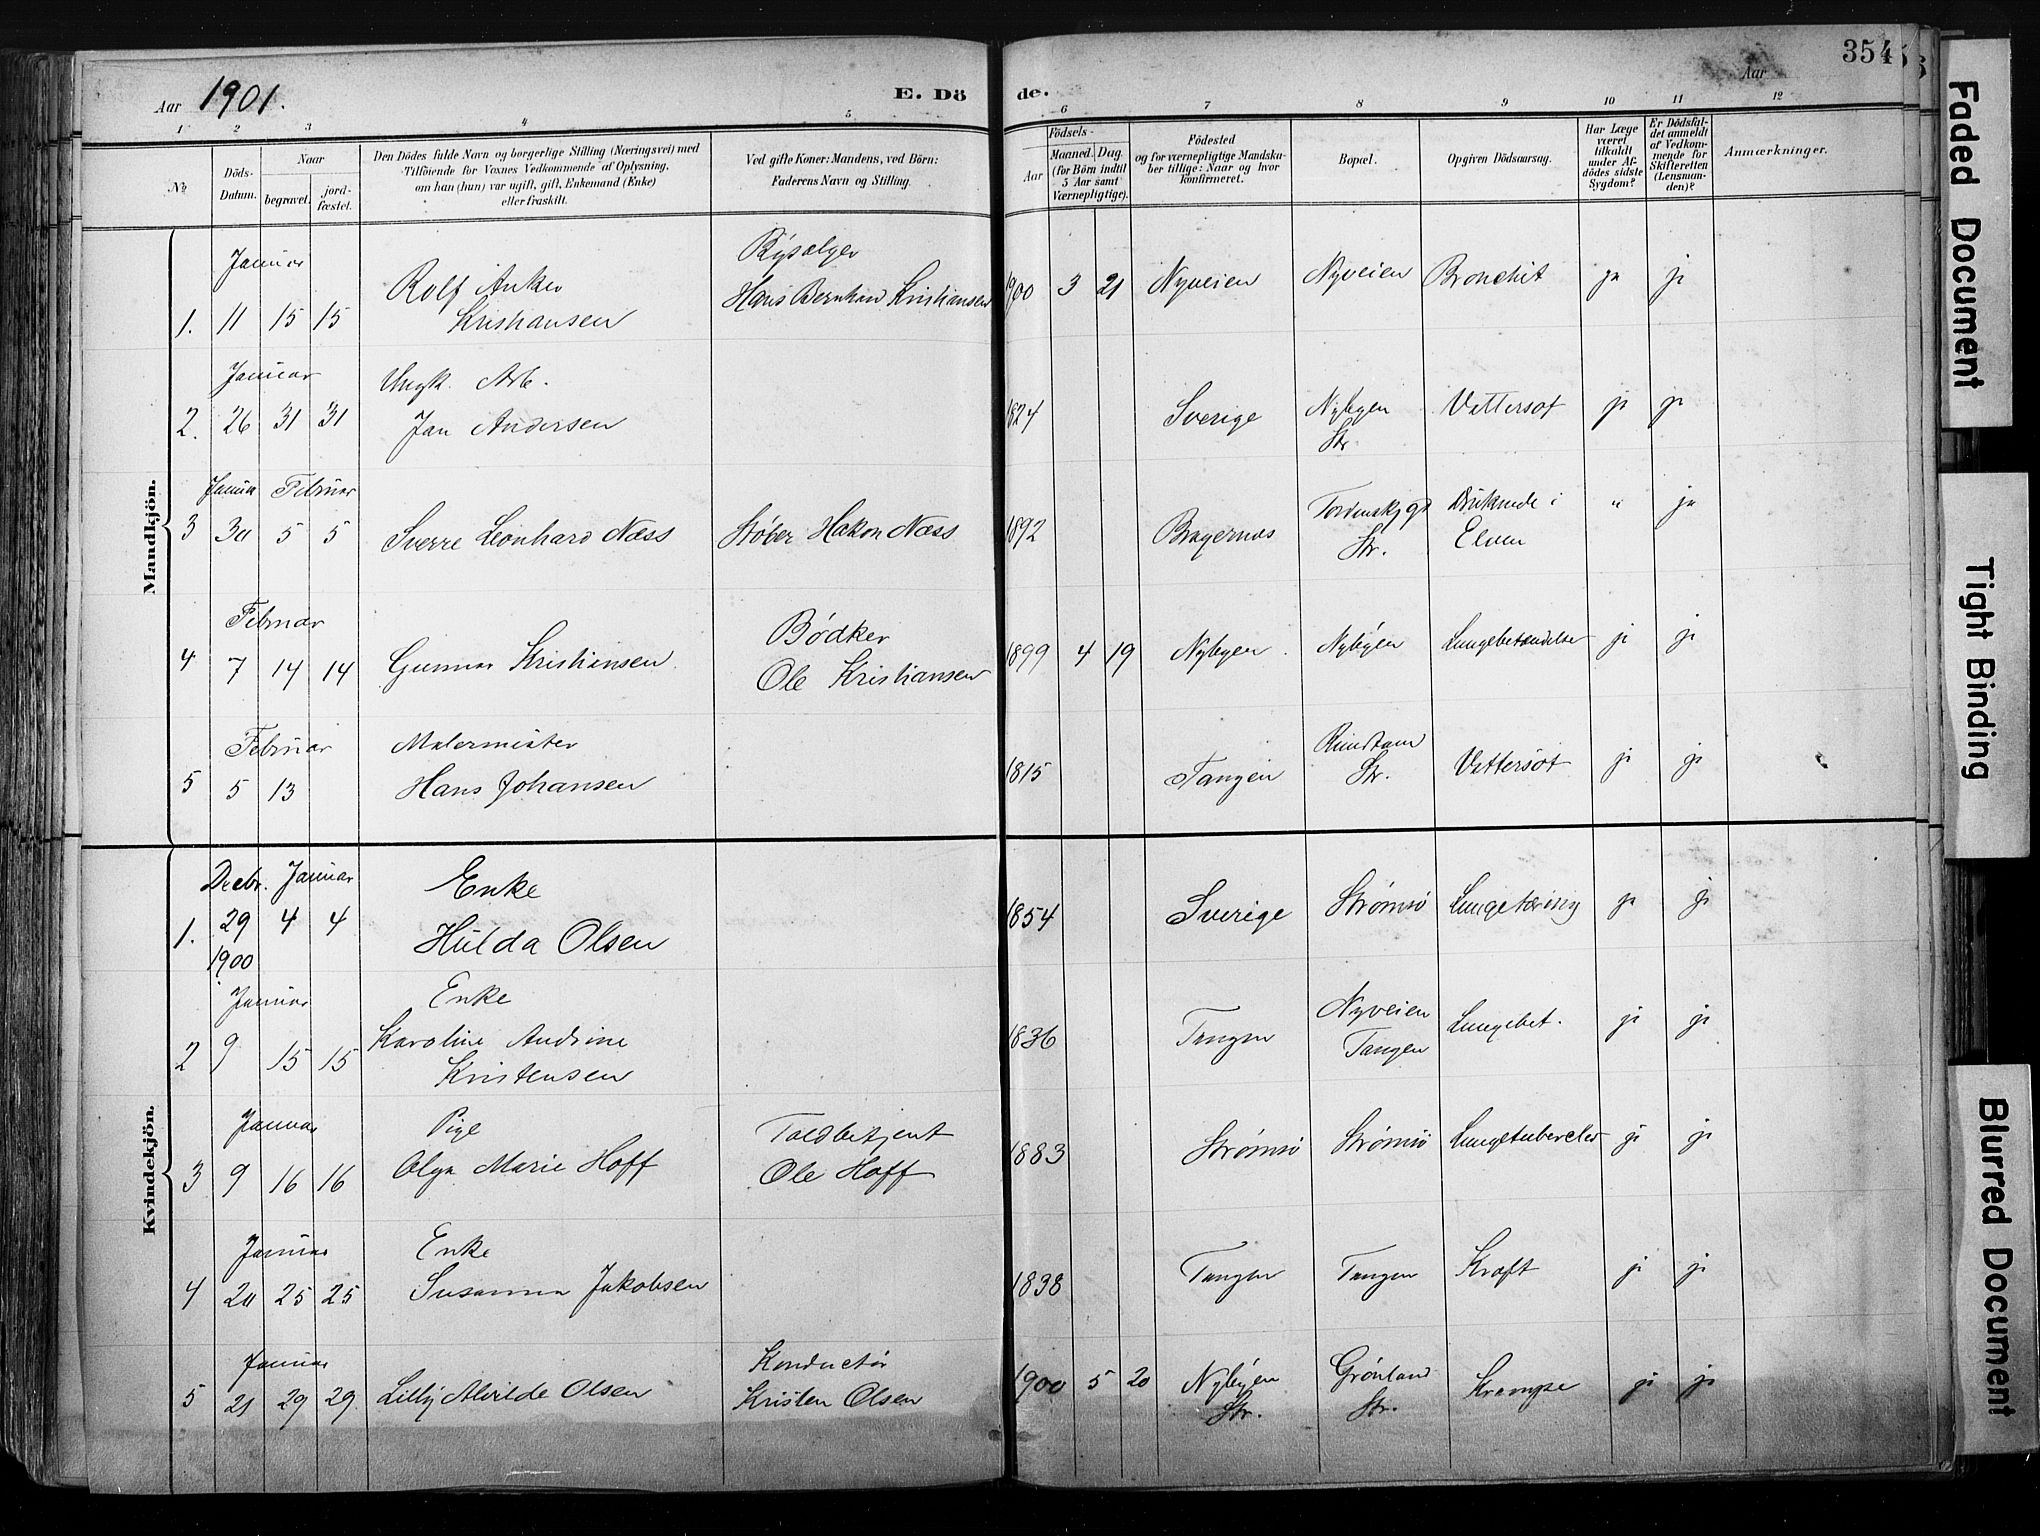 Aar 1901.
E. Döde.
Aar
354
1 2 3 4 5 6 7 8 9 10 11 12
№
Döds-Datum.
Naar
begravet.
jord-fæstet.
Den Dödes fulde Navn og borgerlige Stilling (Næringsvei) med
Tilföiende for Voxnes Vedkommende af Oplysning,
om han (hun) var ugift, gift, Enkemand (Enke)
eller fraskilt.
Ved gifte Koner: Mandens, ved Börn:
Faderens Navn og Stilling.
Födsels-
Aar
Maaned. Dag.
(for Börn indtil
5 Aar samt
Værnepligtige).
Födested
og for værnepligtige Mandska-
ber tillige: Naar og hvor
konfirmeret.
Bopæl.
Opgiven Dödsaarsag.
Har Læge
været
tilkaldt
under Af-
dödes sidste
Sygdom?
Er Dödsfal-
det anmeldt
af Vedkom-
mende for
Skifteretten
(Lensman-
den)?
Anmærkninger.
Mandkjön.
Januar
1. 11 15 15 Rolf Anker Kristiansen
Hans Bernhard Kristiansen
1900 3 21 Nyveien Nyveien Bronchit ja ja
Januar
Ungk. Arb.
2. 26 31 31 Jan Andersen
1824 Sverige Nybyen Str. Vattersot ja ja
Januar Februar
3 30 5 5 Sverre Leonhard Næss Støber Hakon Næss
1892 Bragernæs Str. Druknede i Elven " ja
Februar
4 7 14 14 Gunnar Kristiansen Bødker Ole Kristiansen
1899 4 19 Nybyen Nybyen Lungebetændelse ja ja
Februar
Malermester
5 5 13 Hans Johansen
1815 Tangen Str. Vattersot ja ja
Kvindekjön.
Decbr. Januar
Enke
1. 29 4 4 Hulda Olsen
1900
1854 Sverige Strømsø Lungetæring ja ja
Januar
Enke
2 9 15 15 Karoline Andrine Kristensen
1836 Tangen Nyveien Tangen Lungebet. ja ja
Januar
Pige
3 9 16 16 Olga Marie Hoff Toldbetjent Ole Hoff
1883 Strømsø Strømsø Lungetubercler ja ja
Januar
Enke
4 20 25 25 Susanna Jakobsen
1838 Tangen Tangen Kræft ja ja
Januar
5 21 29 29 Lilly Alvilde Olsen Konductør Kristen Olsen
1900 5 20 Nybyen Str. Grønland Str. Krampe ja ja
Faded Document
Tight Binding
Blurred Document